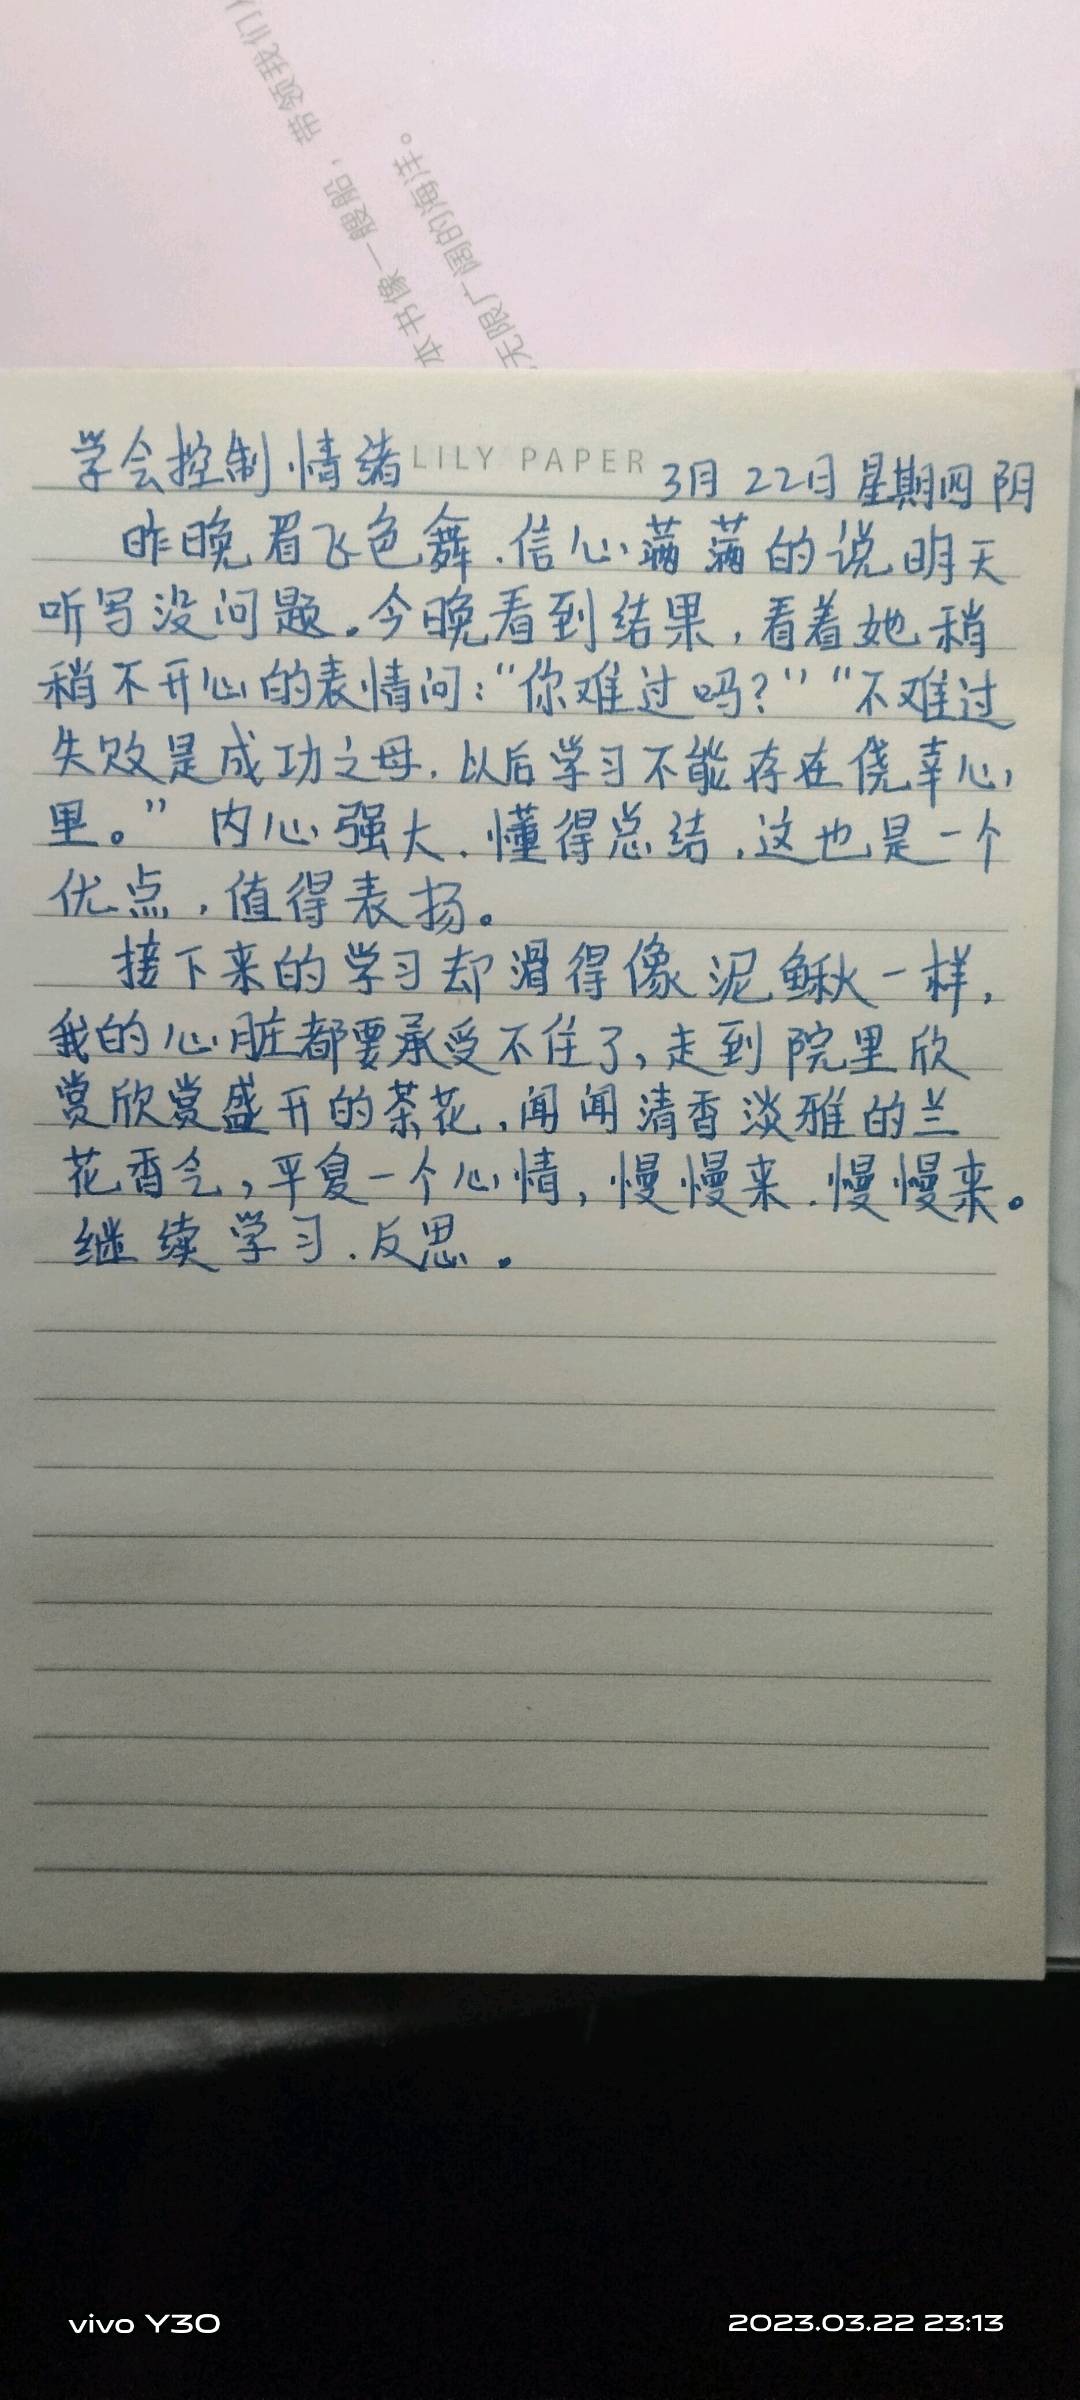 带领我们
本书像一艘船，
无限广阔的海洋。
LILY PAPER
学会控制情绪
3月22日星期四 阴
昨晚眉飞色舞.信心满满的说明天
听写没问题。今晚看到结果，看着她稍
稍不开心的表情问：“你难过吗？”“不难过
失败是成功之母，以后学习不能存在侥幸心
里。”内心强大.懂得总结，这也是一个
优点，值得表扬。
接下来的学习却滑得像泥鳅一样，
我的心脏都要承受不住了，走到院里欣
赏欣赏盛开的茶花，闻闻清香淡雅的兰
花香气，平复一个心情，慢慢来.慢慢来。
继续学习.反思。
vivo Y30
2023.03.22 23:13